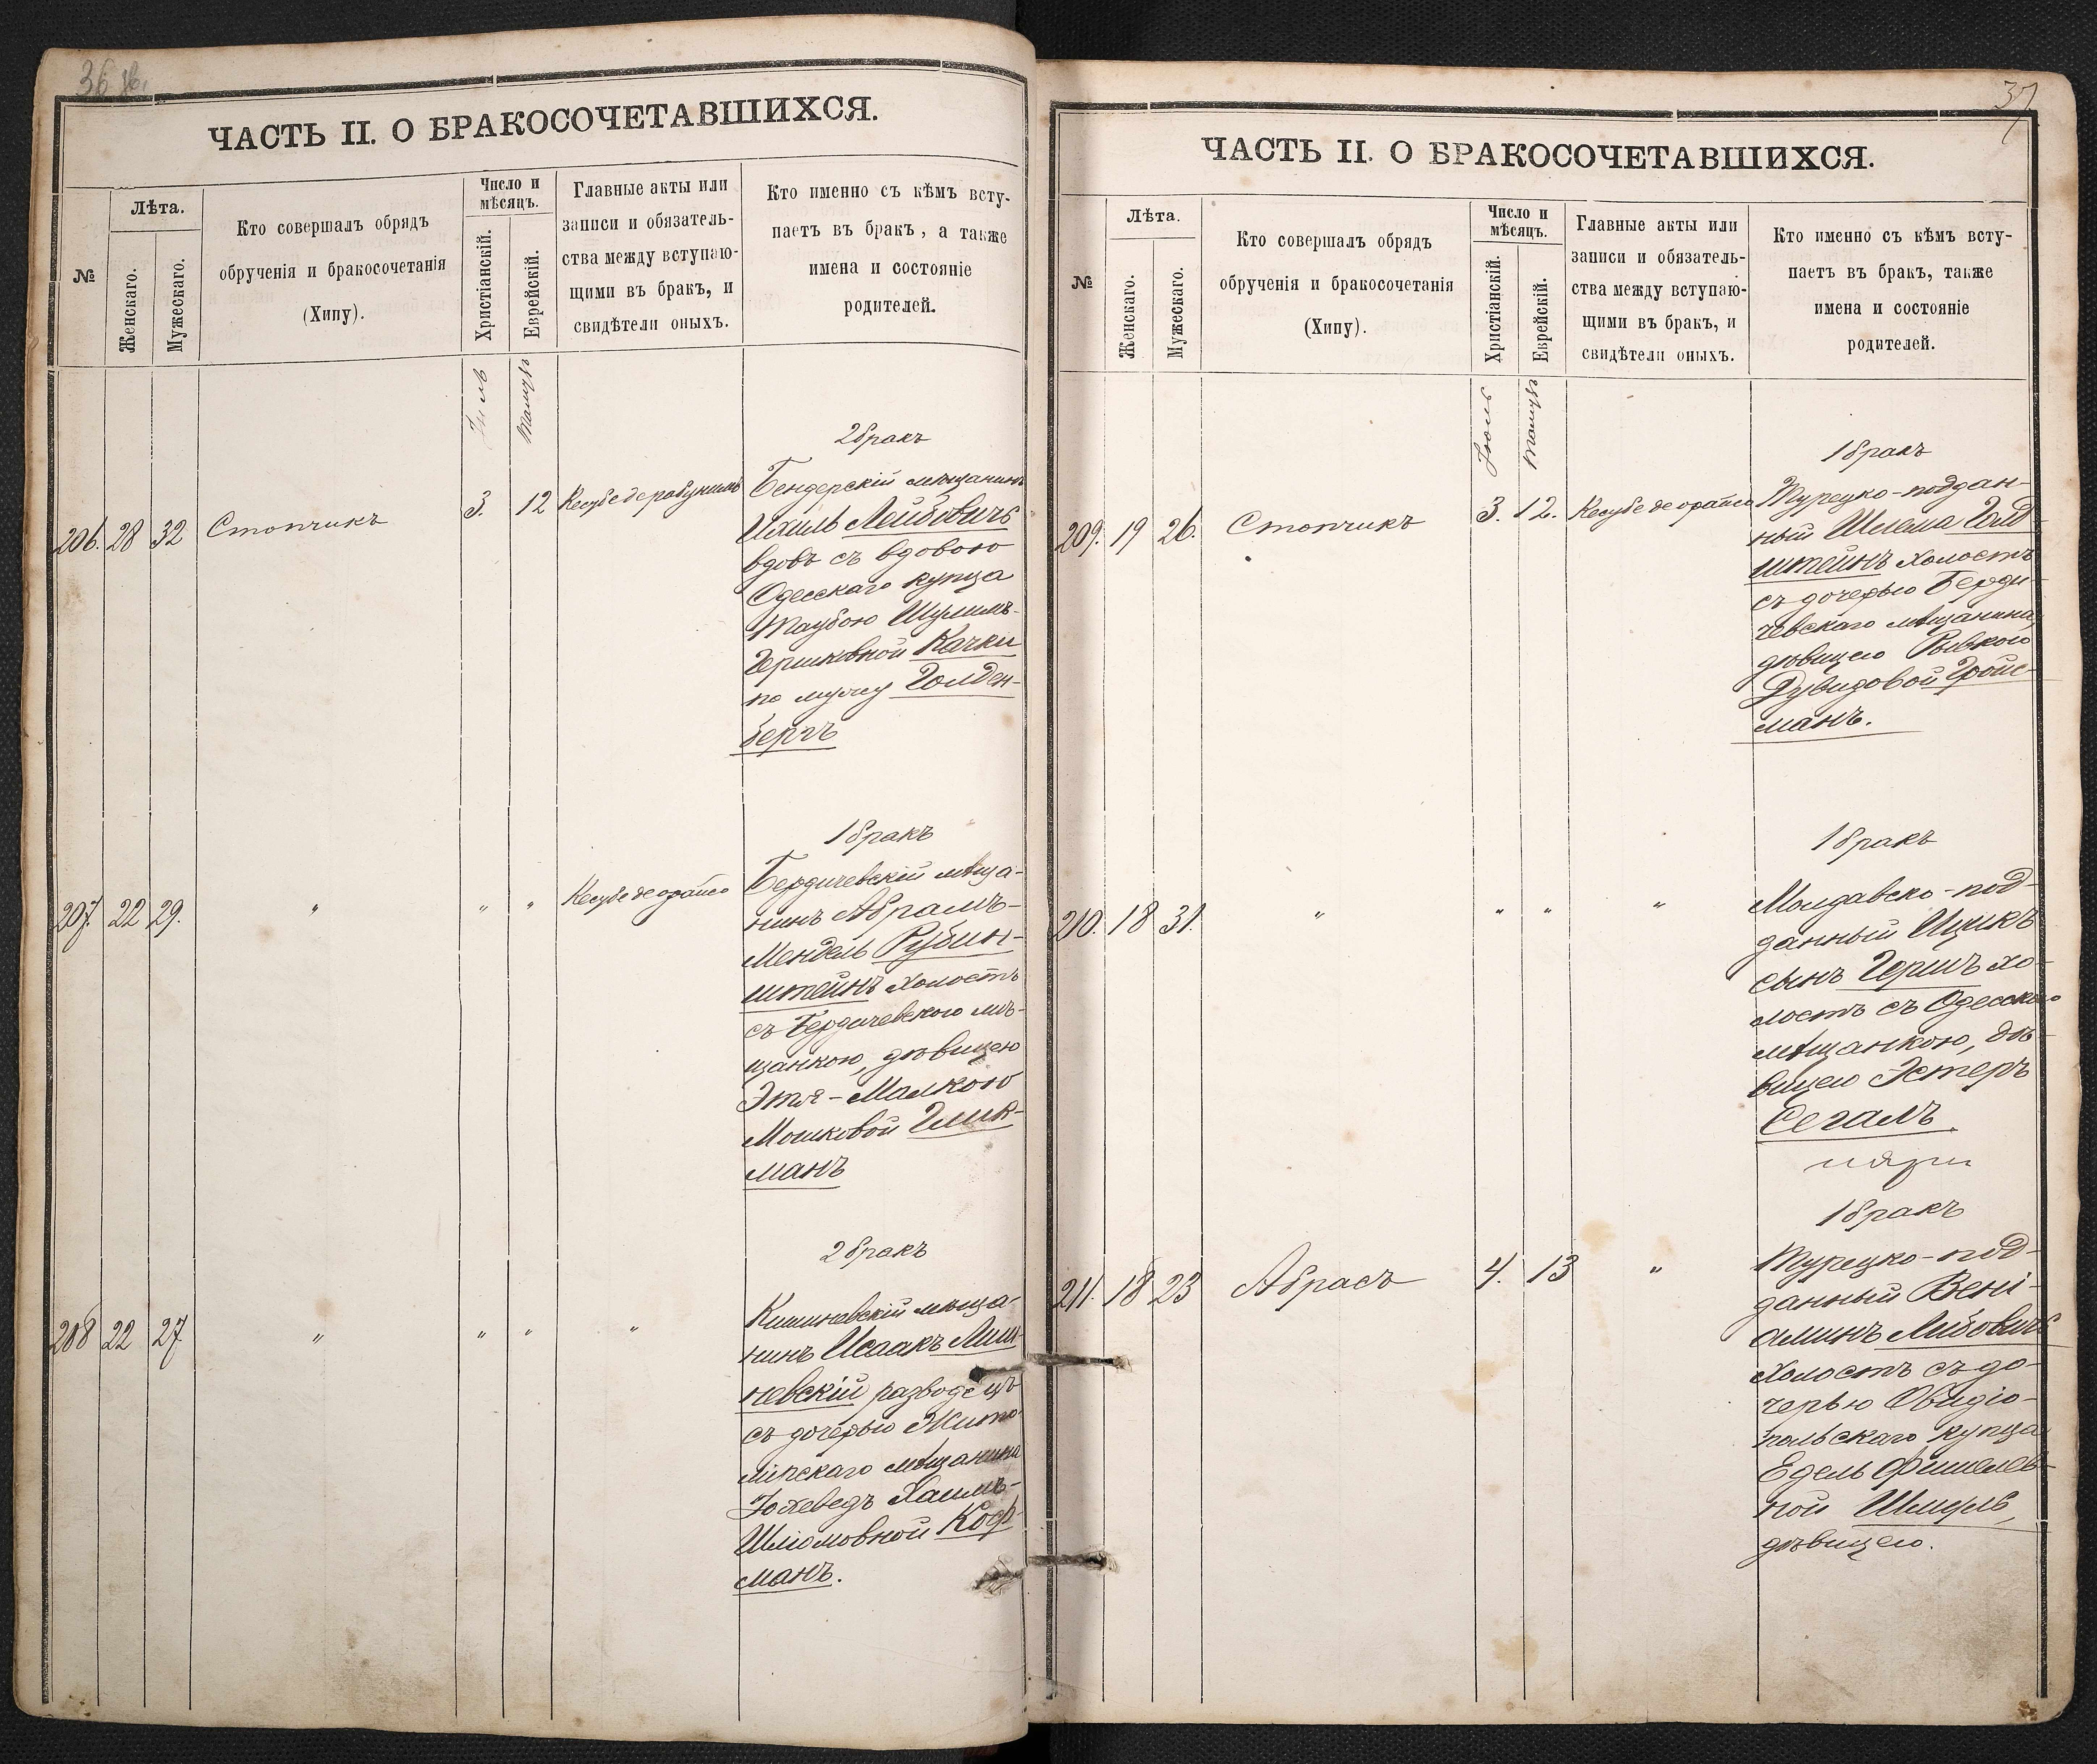 36 об.
ЧАСТЬ II. О БРАКОСОЧЕТАВШИХСЯ.
№
Лѣта.
Женскаго.
Мужескаго.
Кто совершалъ обрядъ
обрученія и бракосочетанія
(Хипу).
Число и
мѣсяцъ.
Христіанскій.
Еврейскій.
Главные акты или
записи и обязатель-
ства между вступаю-
щими въ бракъ, и
свидѣтели оныхъ.
Кто именно съ кѣмъ всту-
паетъ въ бракъ, а также
имена и состояніе
родителей.
Іюль
Тамузъ
2 бракъ
206. 28 32 Стопчикъ 3. 12 Кесубе дерабунимъ
Бендерскій мѣщанинъ
Ихиль Лейбовичъ
вдовъ съ вдовою
Одесскаго купца
Таубою Шулимъ-
Гершковной Качки
по мужу Голден-
бергъ
1 бракъ
207. 22 29. " " " Кесубе деорайсо
Бердичевскій мѣща-
нинъ Абрамъ-
Мендель Рубин-
штейнъ холостъ
съ Бердичевскою мѣ-
щанкою, дѣвицею
Этя-Малкою
Мошковой Глик-
манъ
2 бракъ
208 22 27 " " " "
Кишиневскій мѣща-
нинъ Исаакъ Лиш-
невскій разводецъ
съ дочерью Жито-
мірскаго мѣщанина
Іохеведъ Хаимъ-
Шліомовной Коф-
манъ.
37
ЧАСТЬ II. О БРАКОСОЧЕТАВШИХСЯ.
№
Лѣта.
Женскаго.
Мужескаго.
Кто совершалъ обрядъ
обрученія и бракосочетанія
(Хипу).
Число и
мѣсяцъ.
Христіанскій.
Еврейскій.
Главные акты или
записи и обязатель-
ства между вступаю-
щими въ бракъ, и
свидѣтели оныхъ.
Кто именно съ кѣмъ всту-
паетъ въ бракъ, также
имена и состояніе
родителей.
Іюль
Тамузъ
1 бракъ
209. 19 26. Стопчикъ 3. 12. Кесубе деорайсо
Турецко-поддан-
ный Шлема Голд-
штейнъ холостъ
съ дочерью Берди-
чевскаго мѣщанина,
дѣвицею Рывкою
Дувидовой Гройс-
манъ.
1 бракъ
210. 18 31. " " " "
Молдавско-под-
данный Ицикъ
сынъ Гершъ хо-
лостъ съ Одесскою
мѣщанкою, дѣ-
вицею Эстеръ
Сегалъ.
1 бракъ
211. 18 23 Абрасъ 4. 13 "
Турецко-под-
данный Вені-
аминъ Либовичъ
холостъ съ до-
черью Овидіо-
польскаго купца
Едель Фишелев-
ной Шмуль,
дѣвицею.